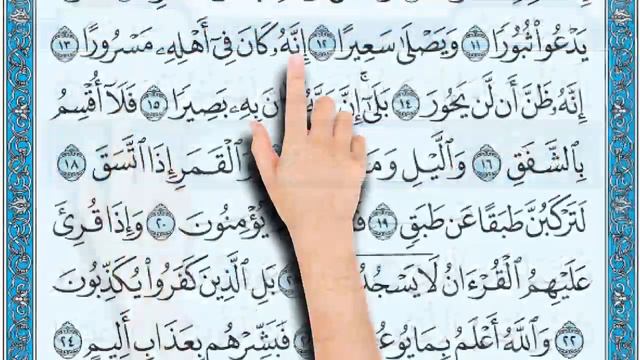 يَدْعُوا۟ ثُبُورًا ١١ وَيَصْلَىٰ سَعِيرًا ١٢ إِنَّهُۥ كَانَ فِىٓ أَهْلِهِۦ مَسْرُورًا ١٣
إِنَّهُۥ ظَنَّ أَن لَّن يَحُورَ ١٤ بَلَىٰٓ إِنَّ بِهِۦ بَصِيرًا ١٥ فَلَآ أُقْسِمُ
بِٱلشَّفَقِ ١٦ وَٱلَّيْلِ وَٱلْقَمَرِ إِذَا ٱتَّسَقَ ١٨
لَتَرْكَبُنَّ طَبَقًا عَن طَبَقٍ ١٩ يُؤْمِنُونَ ٢٠ وَإِذَا قُرِئَ
عَلَيْهِمُ ٱلْقُرْءَانُ لَا يَسْجُدُ بَلِ ٱلَّذِينَ كَفَرُوا۟ يُكَذِّبُونَ
٢٢ وَٱللَّهُ أَعْلَمُ بِمَا يُوعُ فَبَشِّرْهُم بِعَذَابٍ أَلِيمٍ ٢٤